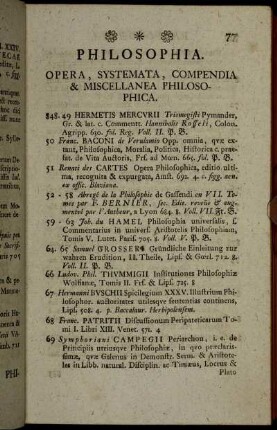 77
PHILOSOPHIA.
OPERA, SYSTEMATA, COMPENDIA
& MISCELLANEA PHILOSO-
PHICA.
848. 49 HERMETIS MERCVRII Trismegisti Pymander,
Gr. & lat. c. Comment. Hannibalis Rosseli, Colon.
Agripp. 630. fol. Reg. Voll. II. P. B.
50 Franc. BACONI de Verulamio Opp. omnia, qvæ ex-
tant, Philosophica, Moralia, Politica, Historica c. præf-
fat. de Vita Auctoris, Frf. ad Mœn. 665. fol. P. B.
51 Renati des CARTES Opera Philosophica, editio ulti-
ma, recognita & expurgata, Amst. 692. 4. c. figg. æn.
ex offic. Blaviana.
52 - 58 Abregé de la Philosophie de Gassendi en VII. To-
mes par F. BERNIER, sec. Edit. revûë & aug-
mentée par l'Autheur, a Lyon 684. 8. Voll. VII. Fr. B.
59 - 63 Joh. du HAMEL, Philosophia universalis, s.
Commentarius in univers. Aristotelis Philosophiam,
Tomis V. Lutet. Paris. 705. 8. Voll. V. P. B.
64. 65 Samuel GROSSERS Gründliche Einleitung zur
wahren Erudition, II. Theile, Lips. & Gorl. 712. 8.
Voll. II. P. B.
66 Ludov. Phil. THVMMIGII Institutiones Philosophiæ
Wolfianæ, Tomis II. Frf. & Lips. 725. 8
67 Hermanni BVSCHII Spicilegium XXXV. Illustrium Phi-
losophor. auctoritates utilesque sententias continens,
Lips. 508. 4. p. Baccalaur. Herbipolensem.
68 Franc. PATRITII Discussionum Peripateticarum To-
mi I. Libri XIII. Venet. 571. 4
69 Symphoriani CAMPEGII Periarchon, i. e. de
Principiis utriusque Philosophiæ, in qvo præclaris-
simæ, qvæ Galenus in Demonstr. Sena. & Aristote-
les in Libb. natural. Disciplin. ac Timæus, Locrus &
Plato
PHI-